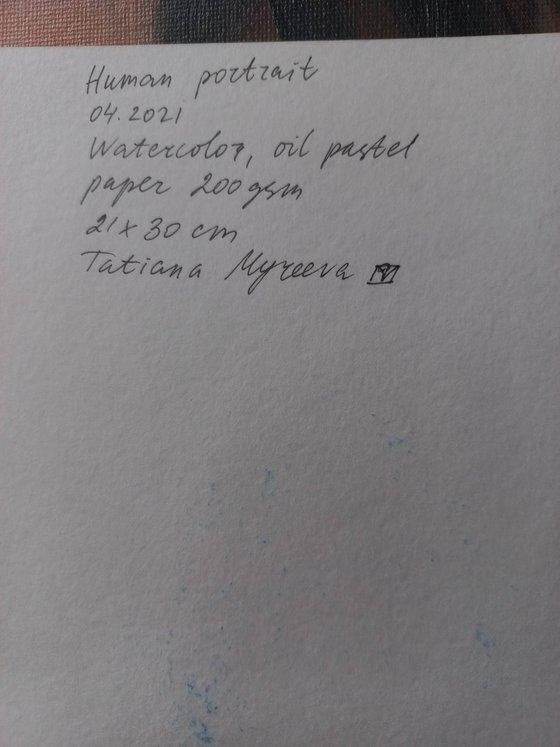 Human portrait
04.2021
Watercolor, oil pastel
paper 200gsm
21x30 cm
Tatiana Myreeva